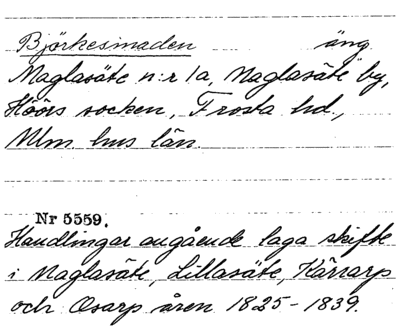 Björkesmaden äng
Maglasäte n:r 1a, Maglasäte by,
Höörs socken, Frosta hd.,
Mlm. hus län.
Nr 5559.
Handlingar angående laga skifte
i Maglasäte, Lillasäte, Kärrarp
och Osarp åren 1825-1839.